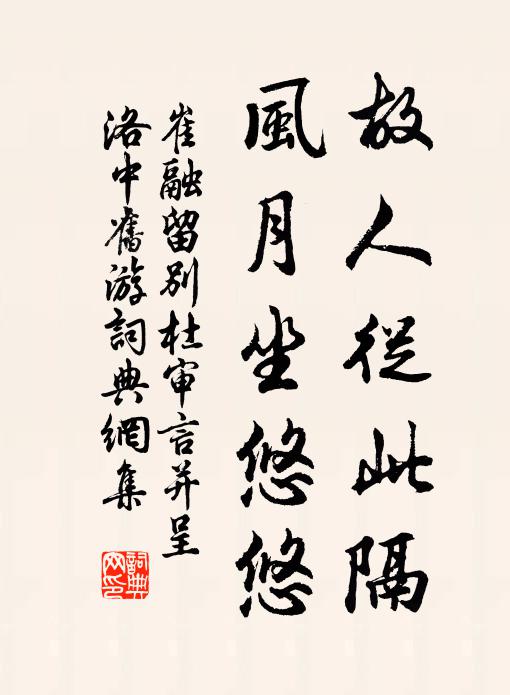 故人從此隔
風月坐悠悠
崔融留別杜审言并呈
洛中舊游詞典網集
詞典
网印